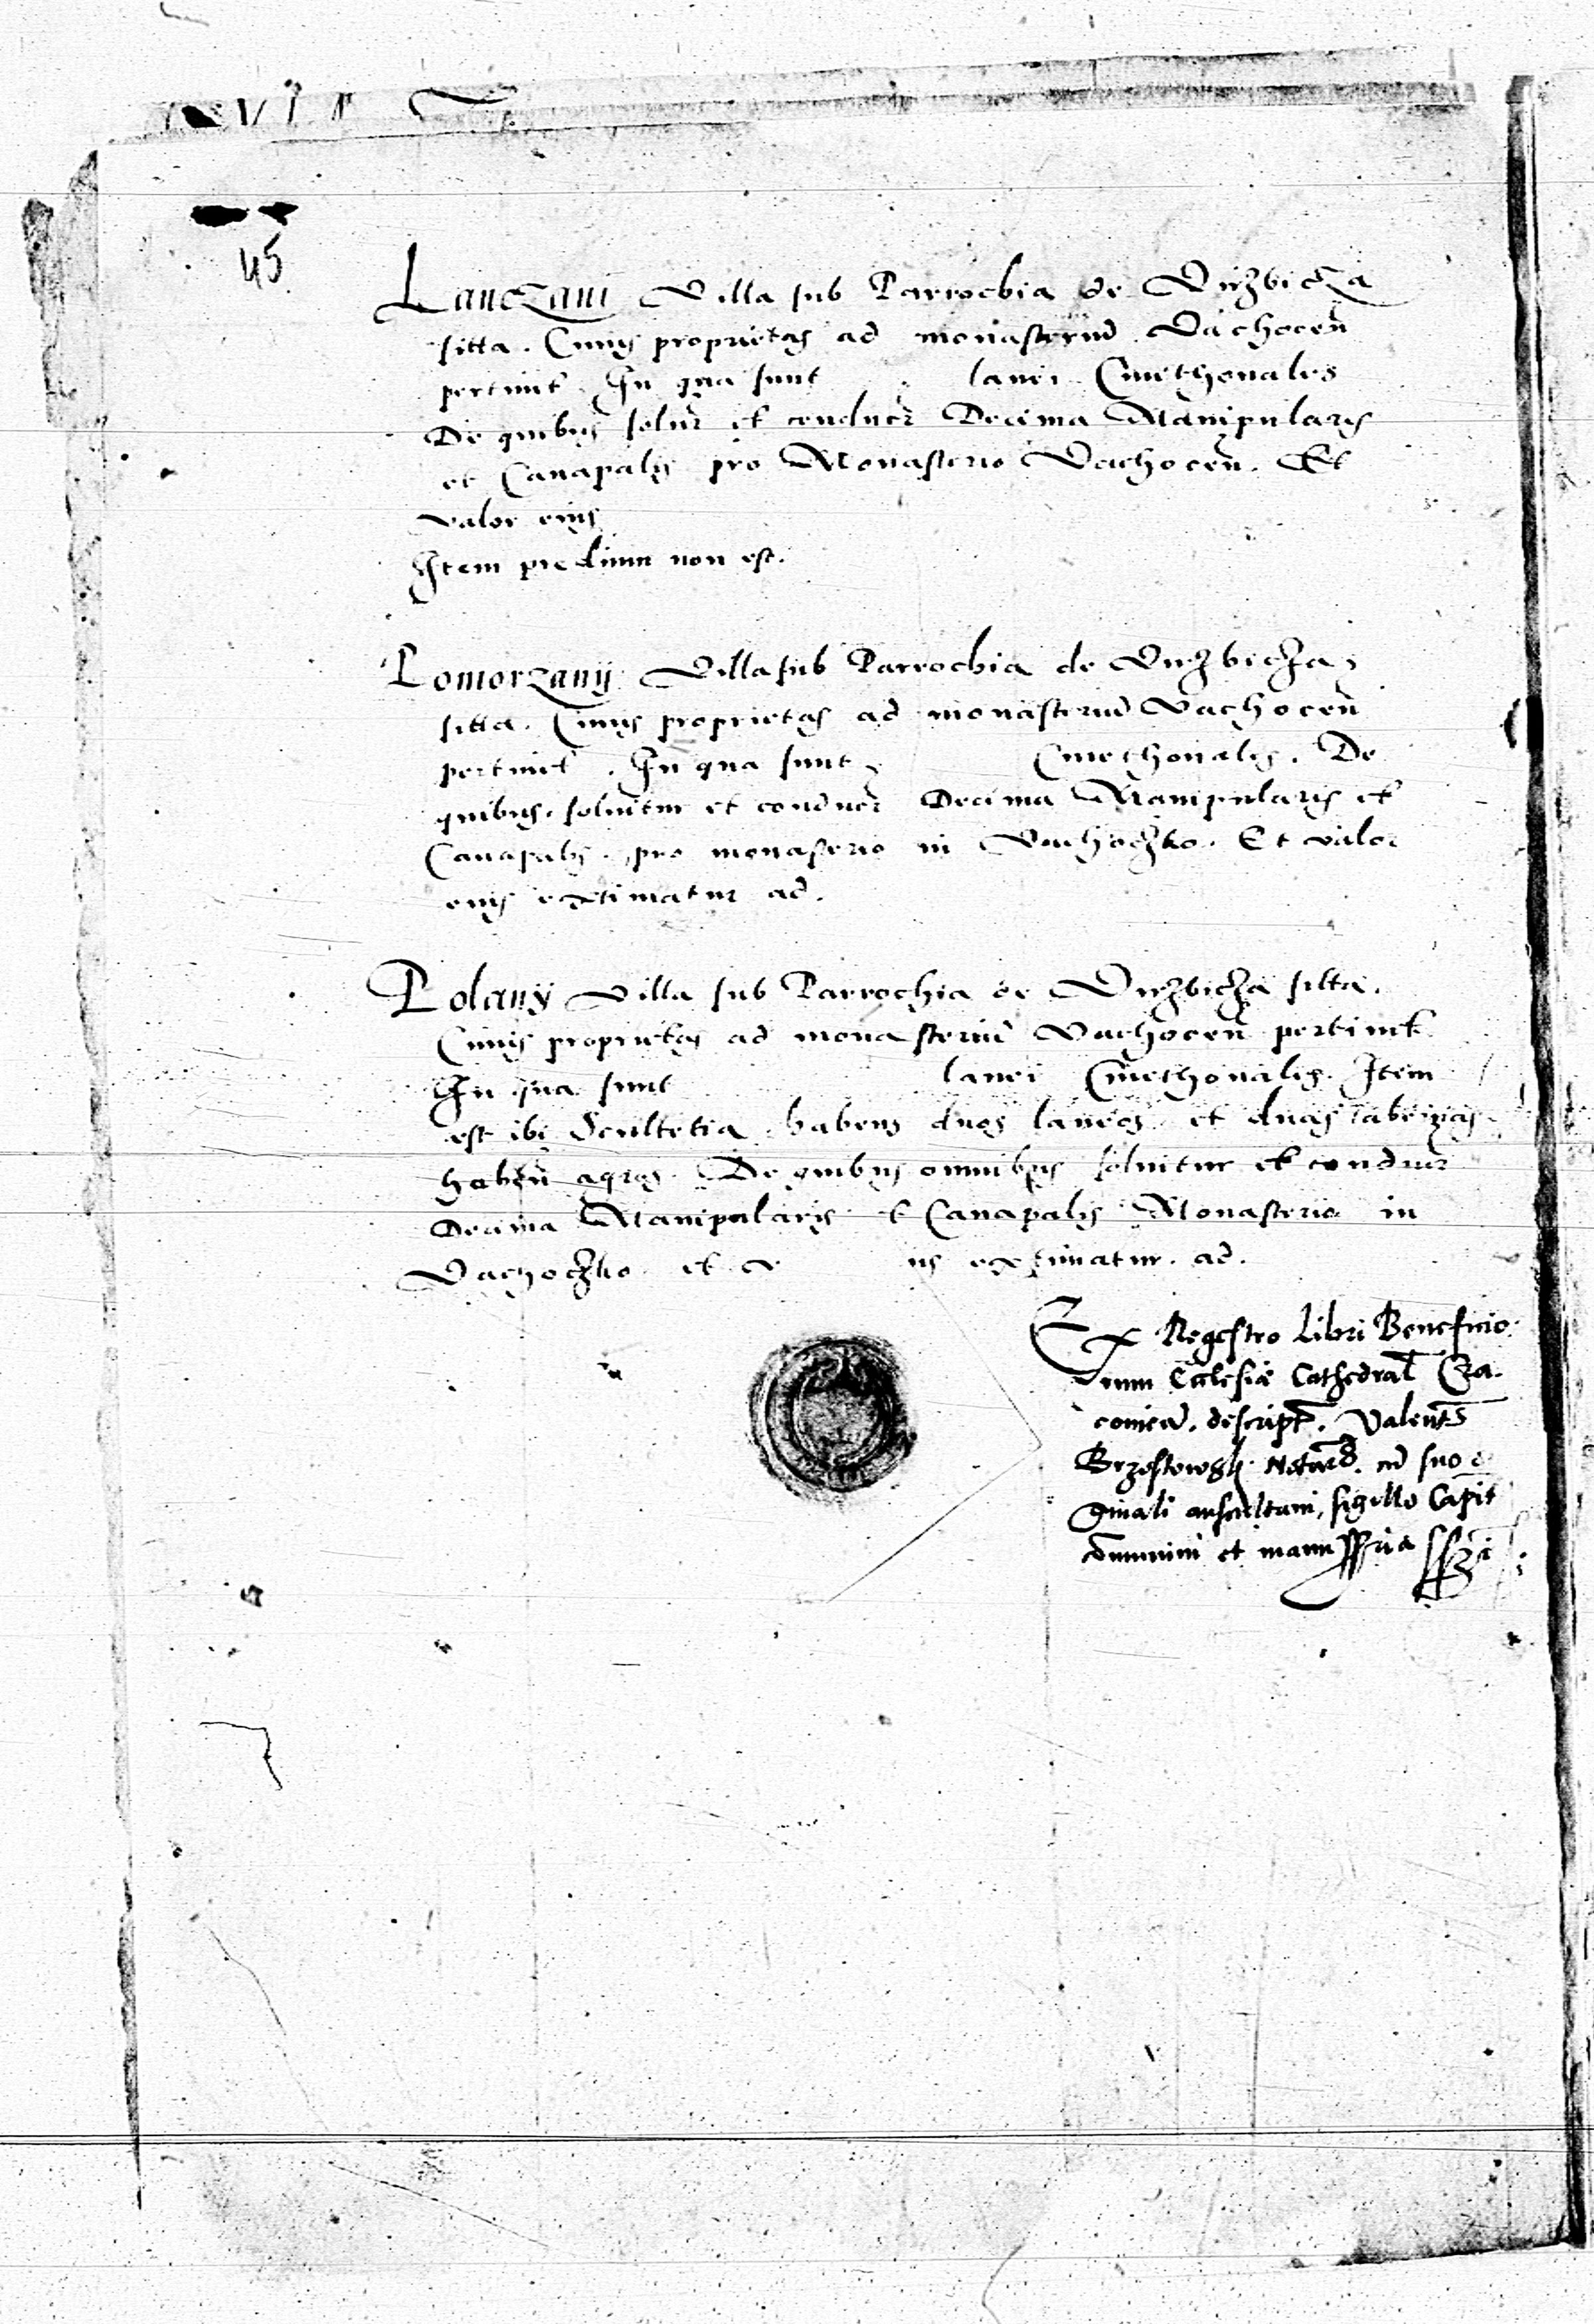 45
Lanczani Villa sub Parrochia de Virzbicza
sitta. Cuius proprietas ad monasterium Vachocen
pertinet. In qua sunt lanei Cmethonales
De quibus solur et conducr Decima Manipularis
et Canapalis pro Monasterio Vachocen. Et
valor eius
Item predium non est.
Pomorzany Villa sub Parrochia de Virzbicza
sitta. Cuius proprietas ad monasterium Vachocen
pertinet. In qua sunt Cmethonales. De
quibus solvitur et conducr Decima Manipularis et
Canapalis pro monasterio in Vachoczko. Et valor
eius extimatur ad.
Polany Villa sub Parrochia de Virzbicza sitta.
Cuius proprietas ad monasterium Vachocen pertinet
In qua sunt lanei Cmethonales. Item
est ibi Scultetia habens duos laneos et duas tabernas
haben agros. De quibus omnibus solvitur et conducr
Decima Manipularis et Canapalis Monasterio in
Vachoczko et v us extimatur ad.
Ex Regestro Libri Beneficio
rum Ecclesiæ Cathedral Cra
covien. descript. Valent
Brzostowsky Notar cu suo
ginali auscultavi, sigillo Capit
communivi et manu ppria sszi